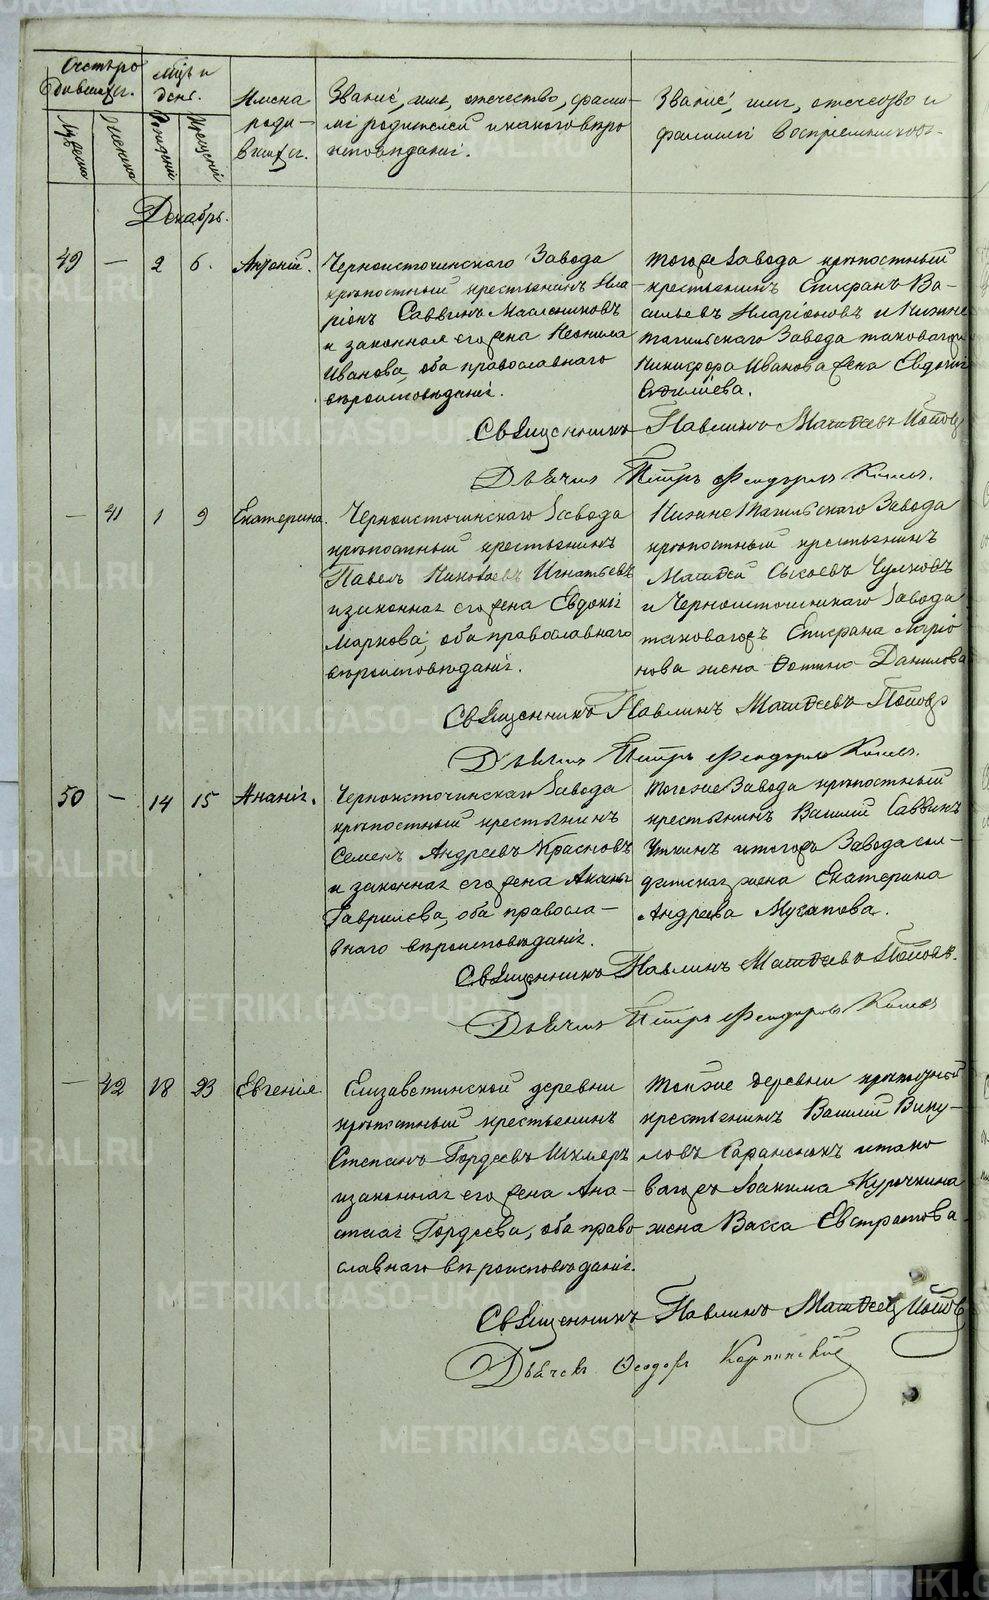 Счетъ ро
дившихся.
Мцъ и
день.
Имена
роди-
вшихся.
Званіе, имя, отчество, фами-
ліи родителей и какого вѣро
исповѣданія.
Званіе, имя, отечество и
фамиліи воспріемниковъ
Мужеска
Женска
Рожденія
Крещенія
Декабрь.
49 — 2 6. Антоній.
Черноисточинскаго Завода
крѣпостный крестьянинъ Ила
ріонъ Саввинъ Масленниковъ
и законная его жена Неонила
Иванова, оба православнаго
вѣроисповѣданія.
того же Завода крѣпостный
крестьянинъ Епифанъ Ва-
сильевъ Иларіоновъ и Нижне
тагильскаго Завода таковагожъ
Никифора Иванова жена Евдокія
Священникъ Павлинъ Матѳеевъ Поповъ
Дьячекъ Петръ Феодоровъ
— 41 1 9 Екатерина.
Черноисточинскаго Завода
крѣпостный крестьянинъ
Павелъ Никоновъ Игнатьевъ
и законная его жена Евдокія
Маркова, оба православнаго
вѣроисповѣданія.
Нижне Тагильскаго Завода
крѣпостный крестьянинъ
Матѳей Сысоевъ Чулковъ
и Черноисточинскаго Завода
таковагожъ Епифана Ларіо
нова жена Фотина Данилова
Священникъ Павлинъ Матѳеевъ Поповъ
Дьячекъ Петръ Феодоровъ
50 — 14 15 Ананія.
Черноисточинскаго Завода
крѣпостный крестьянинъ
Семенъ Андреевъ Красновъ
и законная его жена
Гаврилова, оба правосла-
внаго вѣроисповѣданія.
тогоже Завода крѣпостный
крестьянинъ Василій Саввинъ
Уткинъ и тогожъ Завода сол-
датская жена Екатерина
Андреева Мусатова.
Священникъ Павлинъ Матѳеевъ Поповъ.
Дьячекъ Петръ Феодоровъ
— 42 18 23 Евгенія
Елизаветинской деревни
крѣпостный крестьянинъ
Степанъ Гордѣевъ
и законная его жена Ана-
стасія Гордѣева, оба право
славнаго вѣроисповѣданія.
тойже деревни крѣпостной
крестьянинъ Василій Вику-
ловъ и тако
вагожъ Іоакима Курочкина
жена Васса Евстратова
Священникъ Павлинъ Матѳеевъ Поповъ
Дьячекъ Ѳеодоръ Карпинскій
METRIKI.GASO-URAL.RU